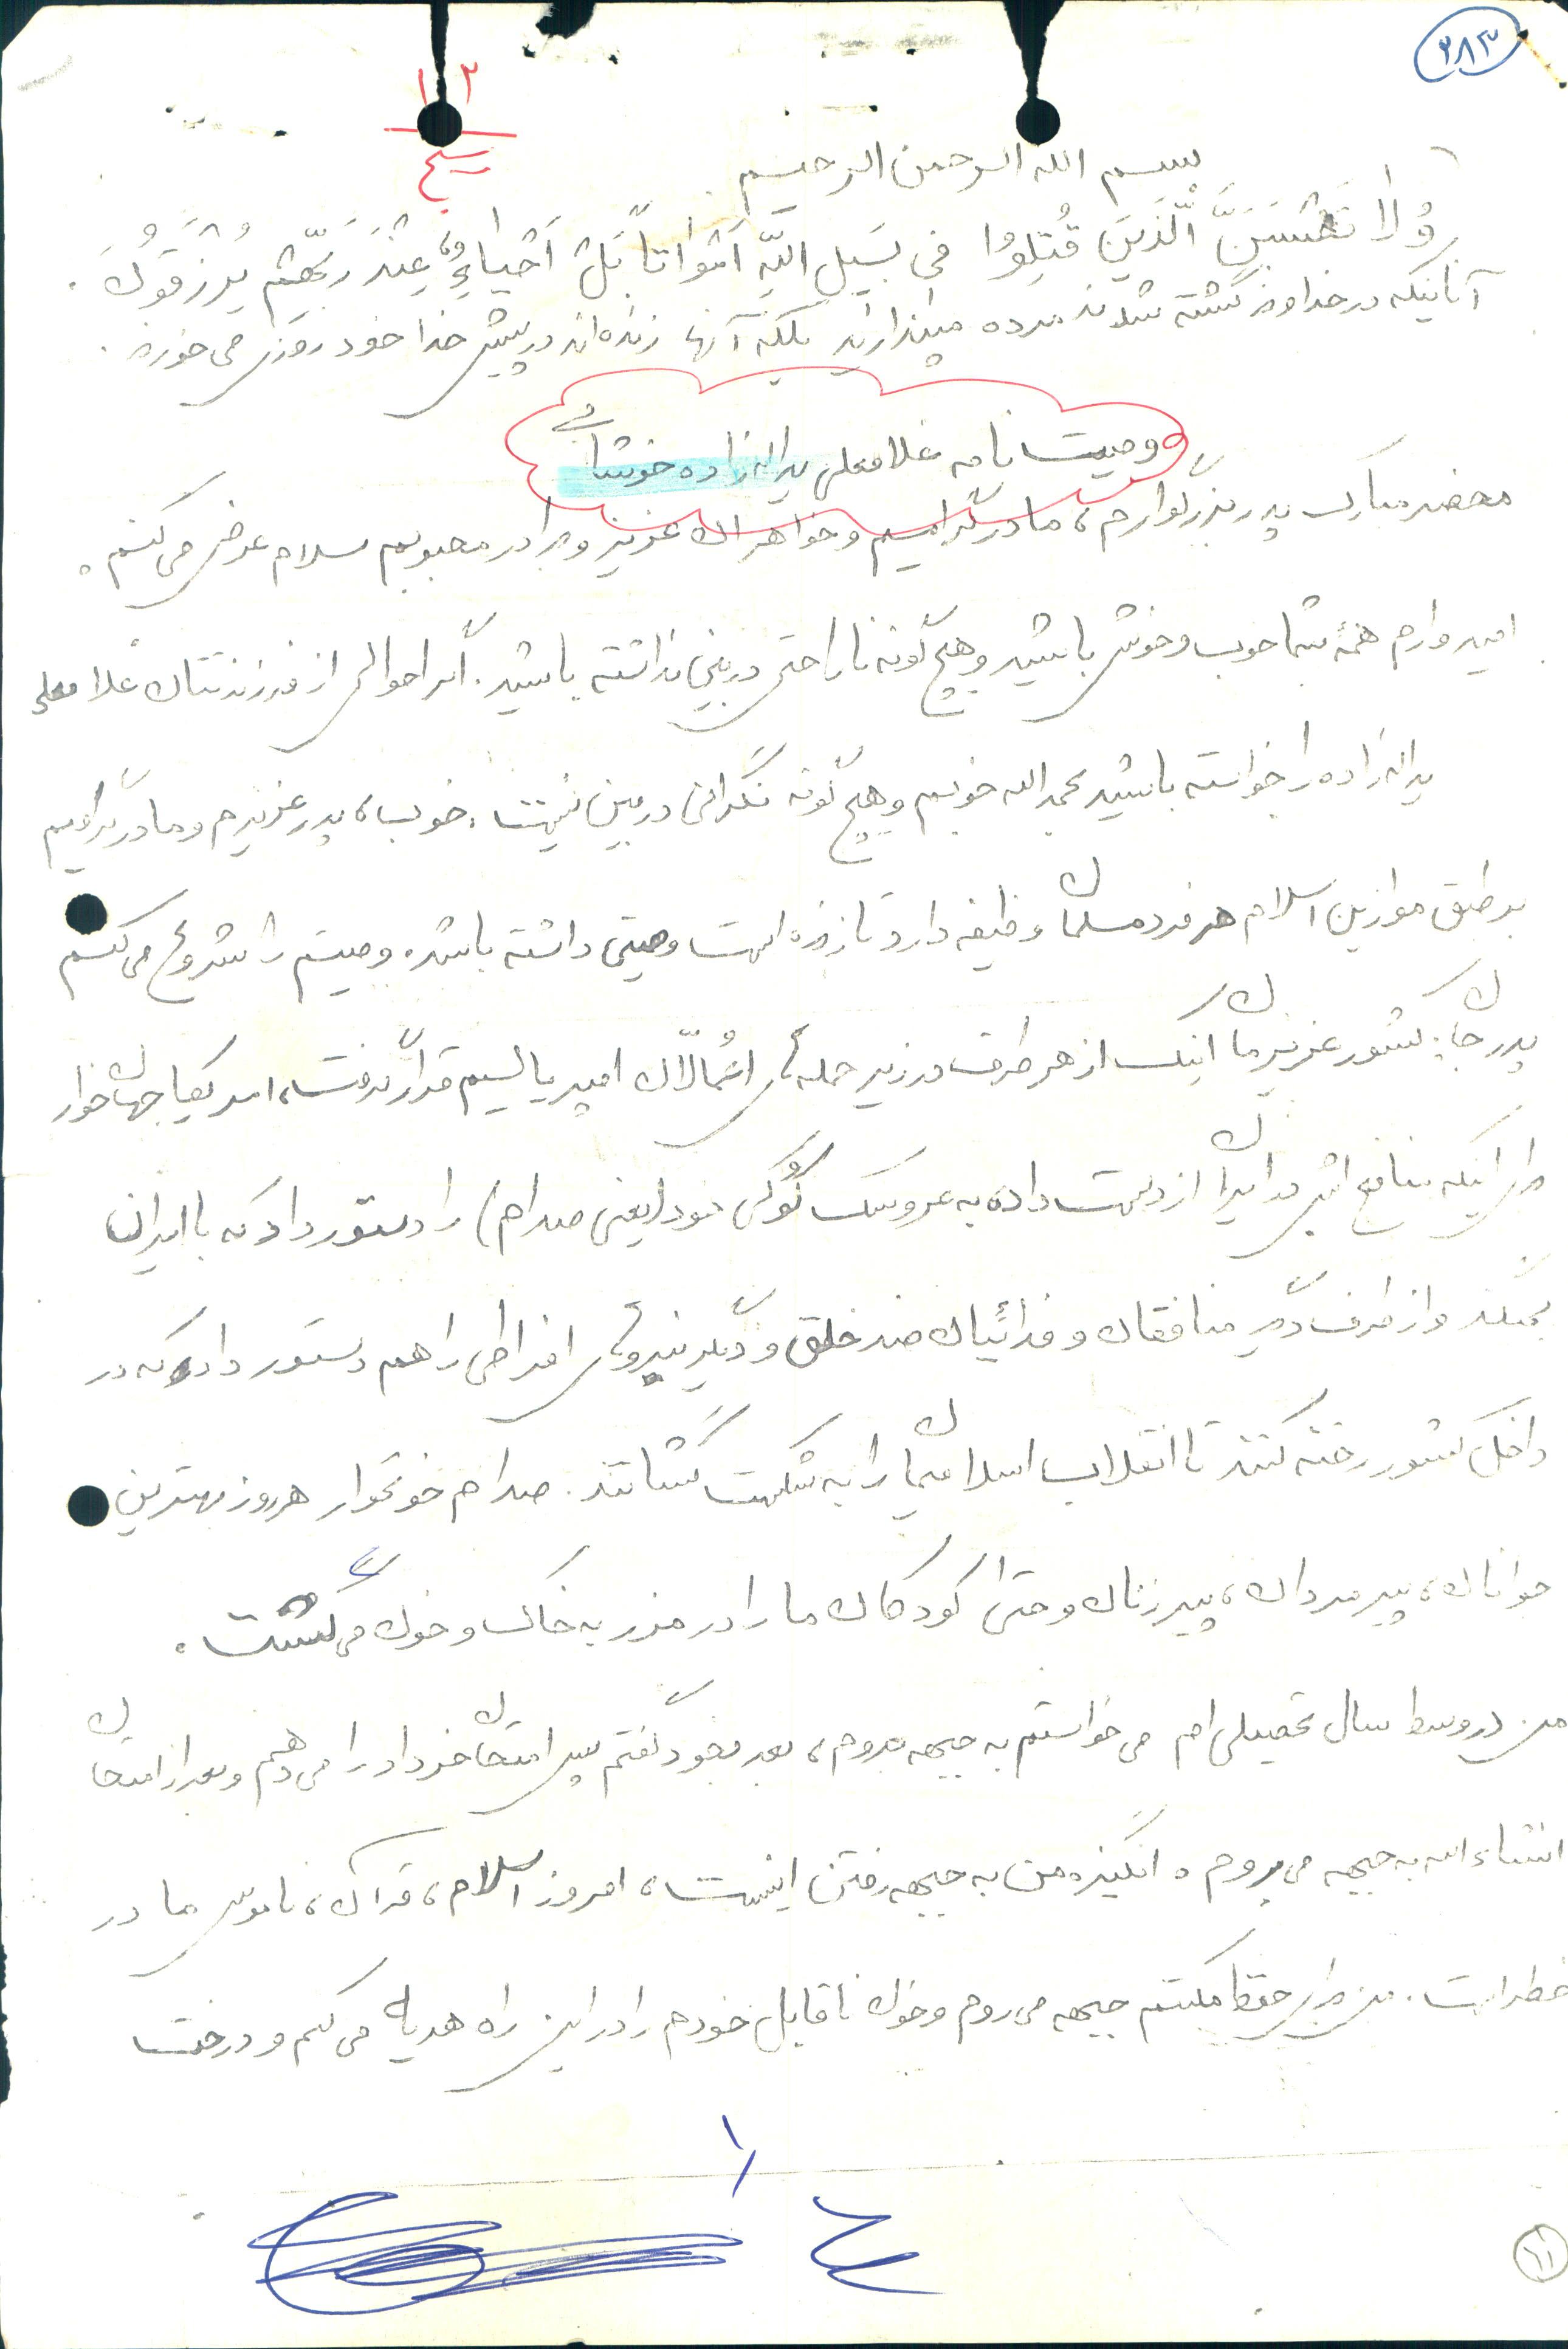 ۲۸۳
۱۲
بسیج
بسم الله الرحمن الرحیم
وَلا تَحْسَبَنَّ الَّذینَ قُتِلُوا فی سَبیلِ اللهِ اَمْواتاً بَلْ اَحْیاءٌ عِنْدَ رَبِّهِمْ یُرْزَقُونَ.
آنانیکه در خداوند کشته شدند مرده مپندارید بلکه آنها زنده‌اند در پیش خدا خود روزی می خورند.
وصیت نامه غلامعلی یداله زاده خوشنامی
محضر مبارک پدر بزرگوارم، مادر گرامیم و خواهران عزیز و برادر محبوبم سلام عرض می کنم.
امیدوارم همهٔ شما خوب و خوش باشید و هیچ گونه ناراحتی در بین نداشته باشید. اگر احوالی از فرزندتان غلامعلی
یداله زاده را خواسته باشید بحمد الله خوبم و هیچ گونه نگرانی در بین نیست. خوب، پدر عزیزم و مادر گرامیم
بر طبق موازین اسلام هر فرد مسلمان وظیفه دارد تا زنده است وصیتی داشته باشد. وصیتم را شروع می کنم
پدر جان: کشور عزیزمان اینک از هر طرف در زیر حمله‌های اعُمالّان امپریالیسم قرار گرفته، امریکا جهان خوار
برای اینکه منافع اش در ایران از دست داده به عروسک کوُکی خود (یعنی صدام) را دستور داد که با ایران
بجنگد و از طرف دگیر منافقان و فدائیان ضد خلق و دگیر نیروهای افراطی را هم دستور داد که در
داخل کشور رخنه کنند تا انقلاب اسلامیمان را به شکست کشانند. صدام خونخوار هر روز بهترین
جوانان، پیر مردان، پیر زنان و حتی کودکان ما را در مرز به خاک و خون می کشت.
من در وسط سال تحصیلی ام می خواستم به جبهه بروم، بعد بخود گفتم پس امتحان خرداد را می دهم و بعد از امتحان
انشاءالله به جبهه می روم. انگیزه من به جبهه رفتن اینست، امروز اسلام، قرآن، ناموس ما در
خطر است. من برای حفظ مکتبم جبهه می روم و خون ناقابل خودم را در این راه هدیه می کنم و درخت
۱
۱۱